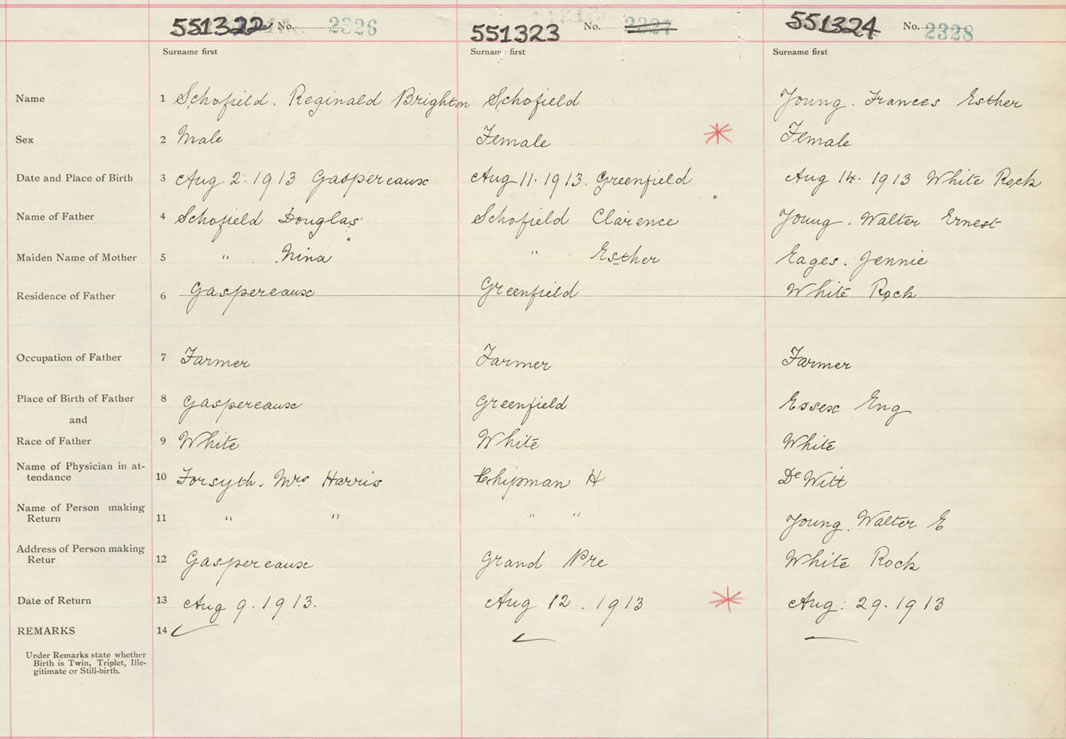 551322 No. 2326 551323 No. 2327 551324 No. 2328
Surname first Surname first Surname first
Name 1 Schofield. Reginald Brighton Schofield Young. Frances Esther
Sex 2 Male Female Female
Date and Place of Birth 3 Aug 2. 1913 Gaspereaux Aug 11. 1913. Greenfield Aug 14. 1913 White Rock
Name of Father 4 Schofield Douglas Schofield Clarence Young. Walter Ernest
Maiden Name of Mother 5 " Nina " Esther Eages. Jennie
Residence of Father 6 Gaspereaux Greenfield White Rock
Occupation of Father 7 Farmer Farmer Farmer
Place of Birth of Father 8 Gaspereaux Greenfield Essex Eng
and
Race of Father 9 White White White
Name of Physician in at-
tendance 10 Forsyth. Mrs Harris Chipman H De Witt
Name of Person making
Return 11 " " " " Young. Walter E
Address of Person making
Retur 12 Gaspereaux Grand Pre White Rock
Date of Return 13 Aug 9. 1913. Aug 12. 1913 Aug: 29. 1913
REMARKS 14
Under Remarks state whether
Birth is Twin, Triplet, Ille-
gitimate or Still-birth.